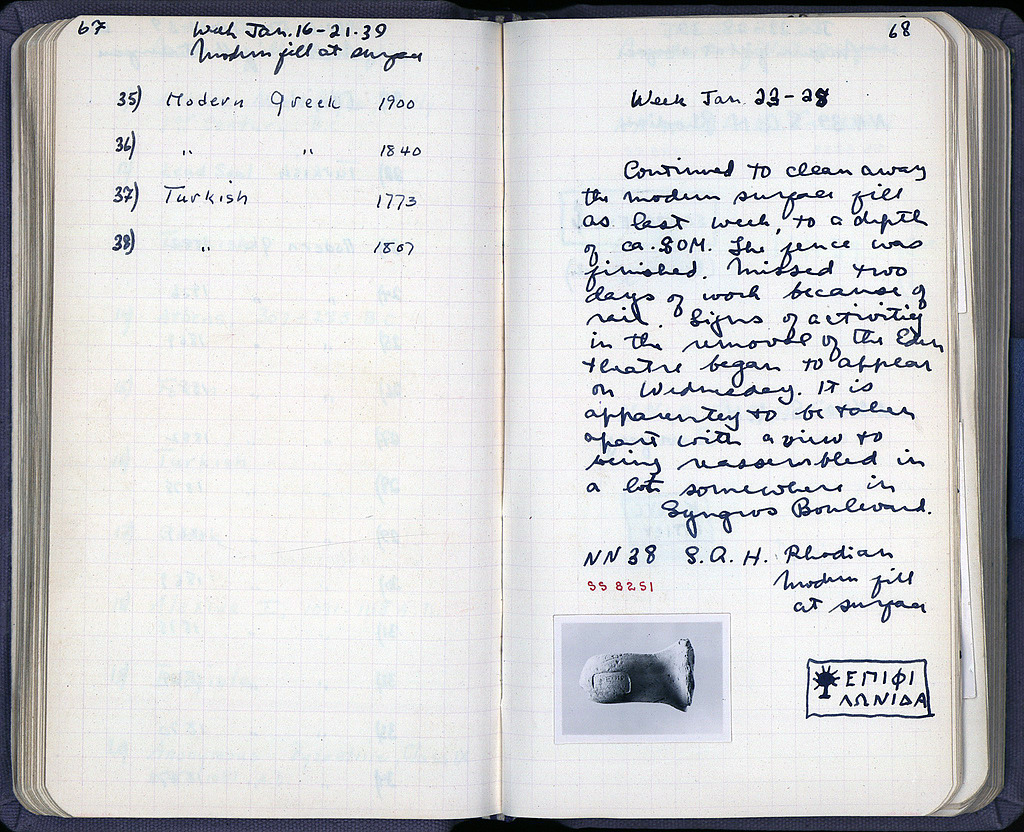 67
Week Jan. 16-21-39
Modern fill at surface
35) Modern Greek 1900
36) " " 1840
37) Turkish 1773
38) " 1807
68
Week Jan. 23-28
Continued to clean away
the modern surface fill
as last week, to a depth
of ca. .80M. The fence was
finished. Missed two
days of work because of
rain. Signs of activitiy
in the removal of the Eden
theatre began to appear
on Wednesday. It is
apparently to be taken
apart with a view to
being reassembled in
a lot somewhere in
Syngros Boulevard.
NN 38 S.A.H. Rhodian
SS 8251
Modern fill
at surface
ΕΠΙΦΙ
ΛΩΝΙΔΑ